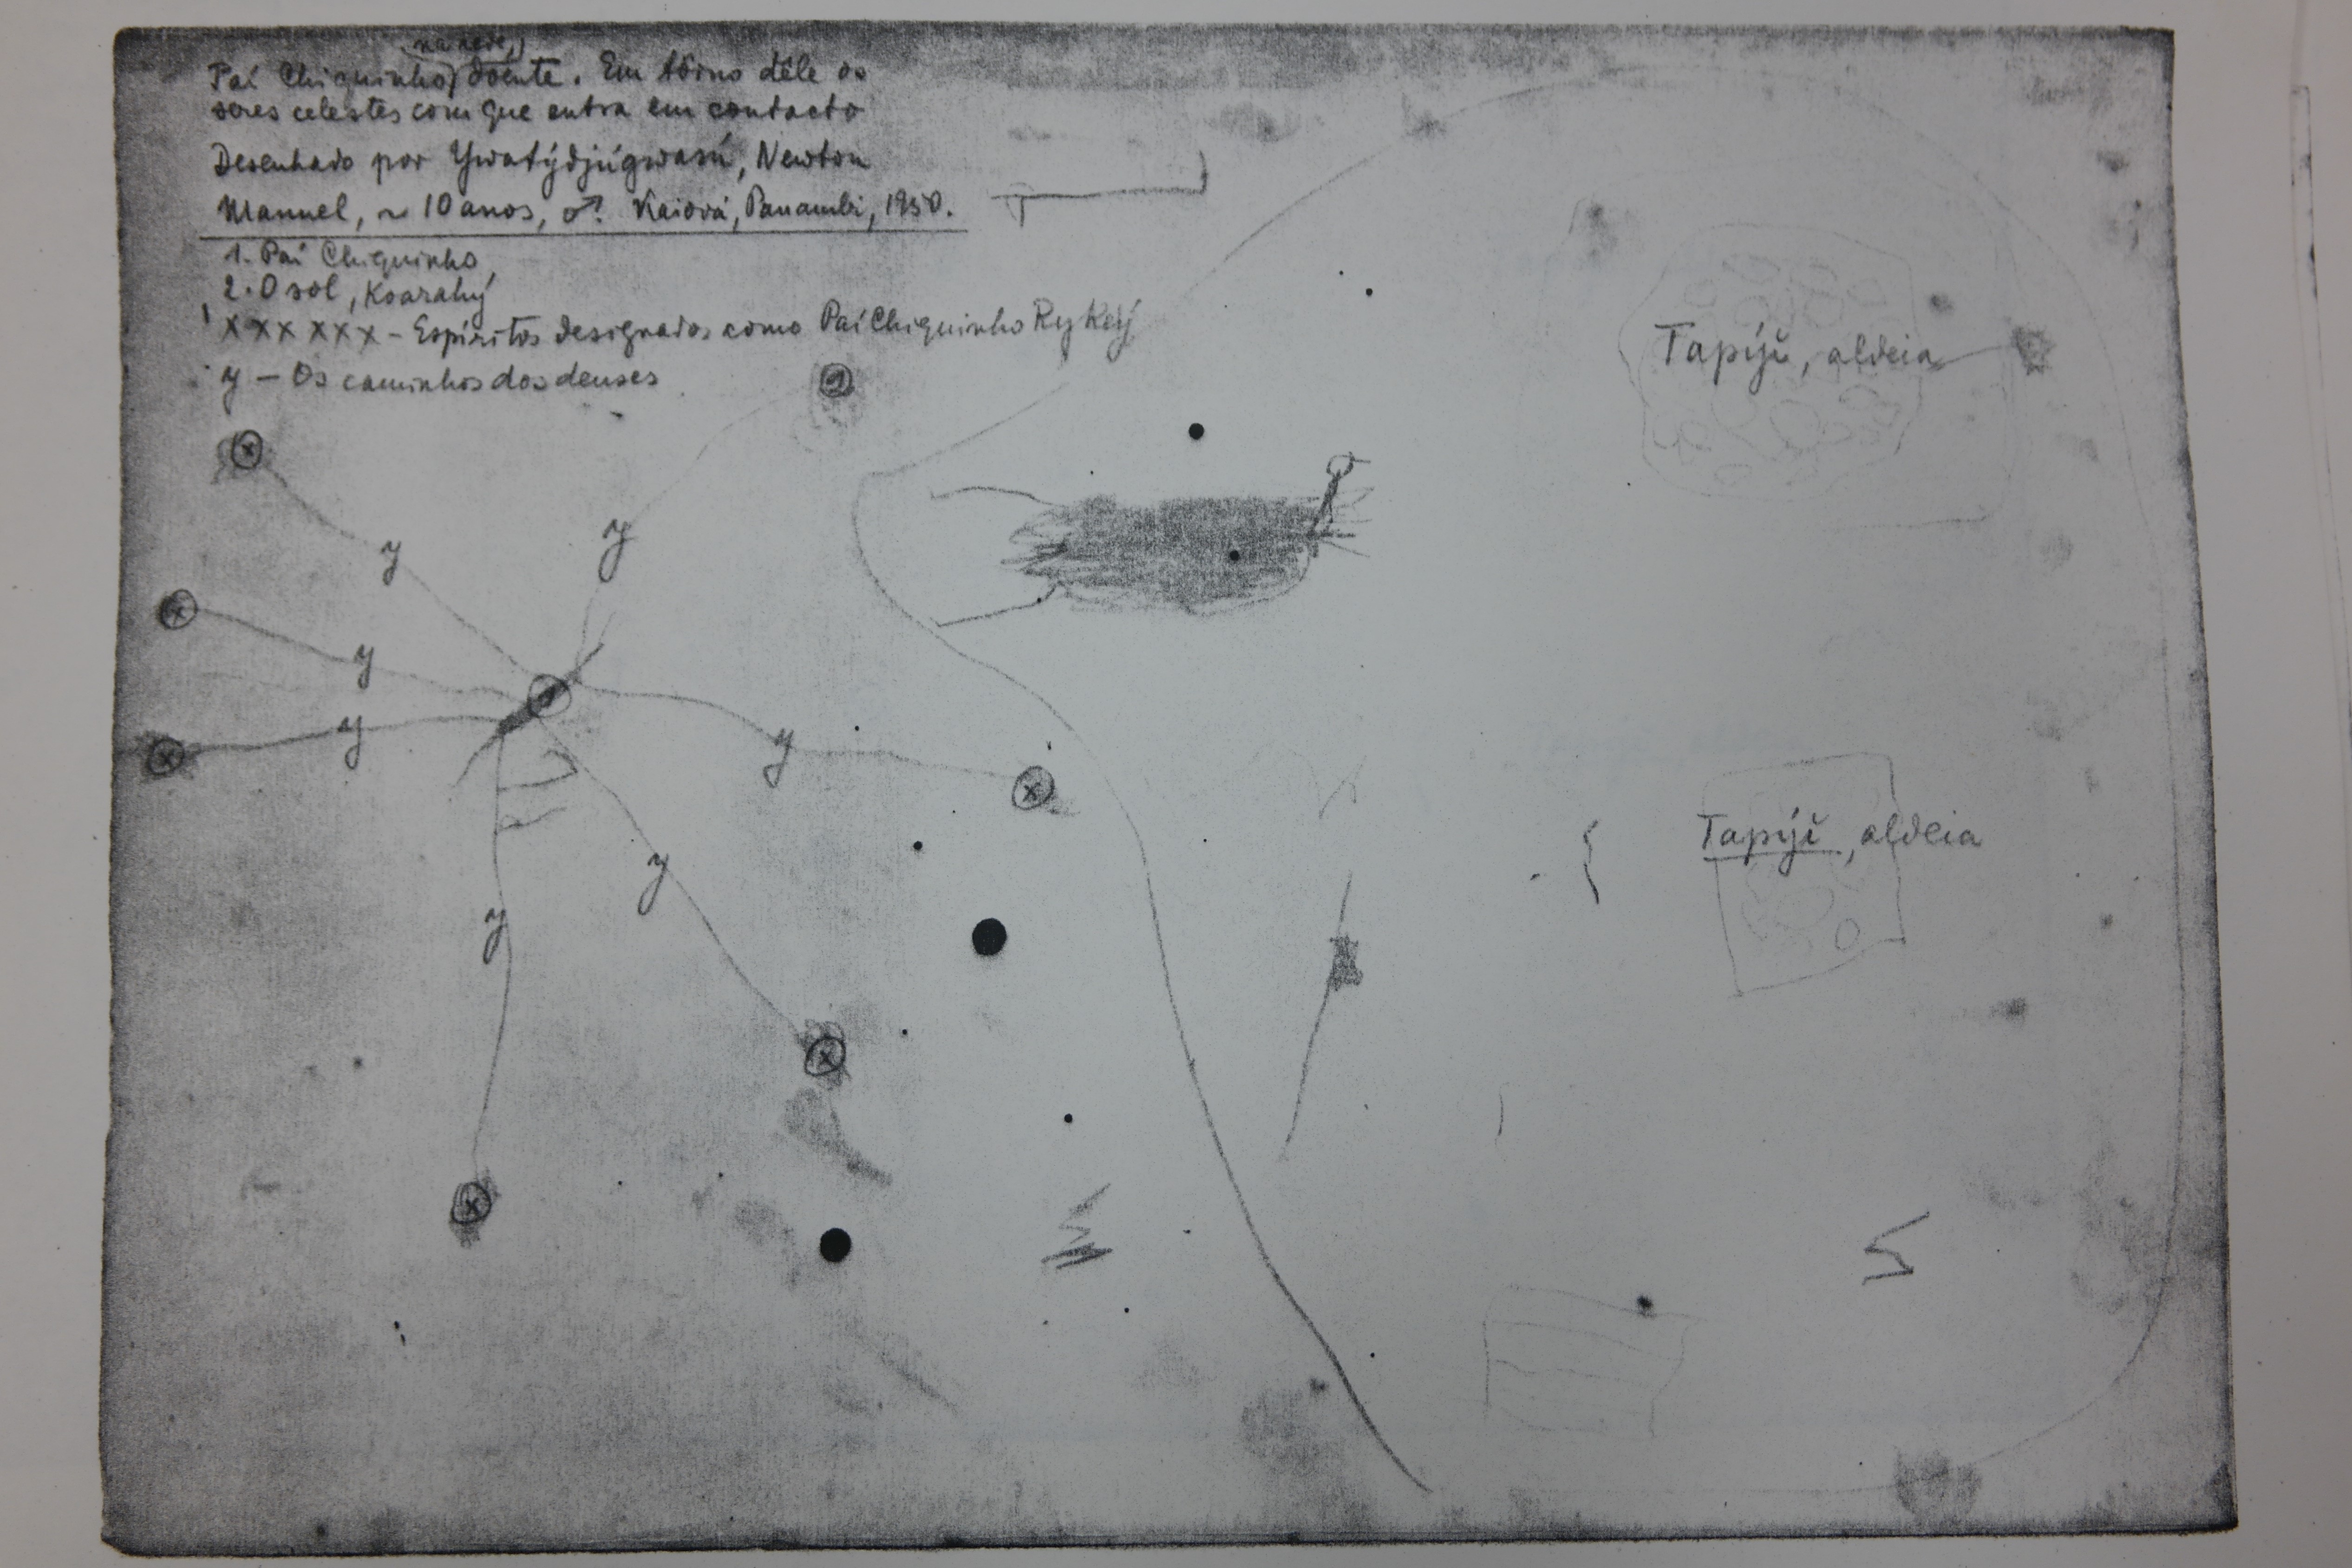 na rede,
Paí Chiquinho, doente. Em tôrno dêle os
seres celestes com que entra em contacto
Desenhado por Ywatýdjúgwasú, Newton
Manuel, ~ 10 anos, ♂. Kaiová, Panambi, 1950.
1. Paí Chiquinho
2. O sol, Kwarahý
x x x x x x - Espíritos designados como Paí Chiquinho Ry Keý
y - Os caminhos dos deuses
Tapýi, aldeia
2
x
y
y
x
y
1
x
y
y
x
Tapýi, aldeia
y
y
x
x